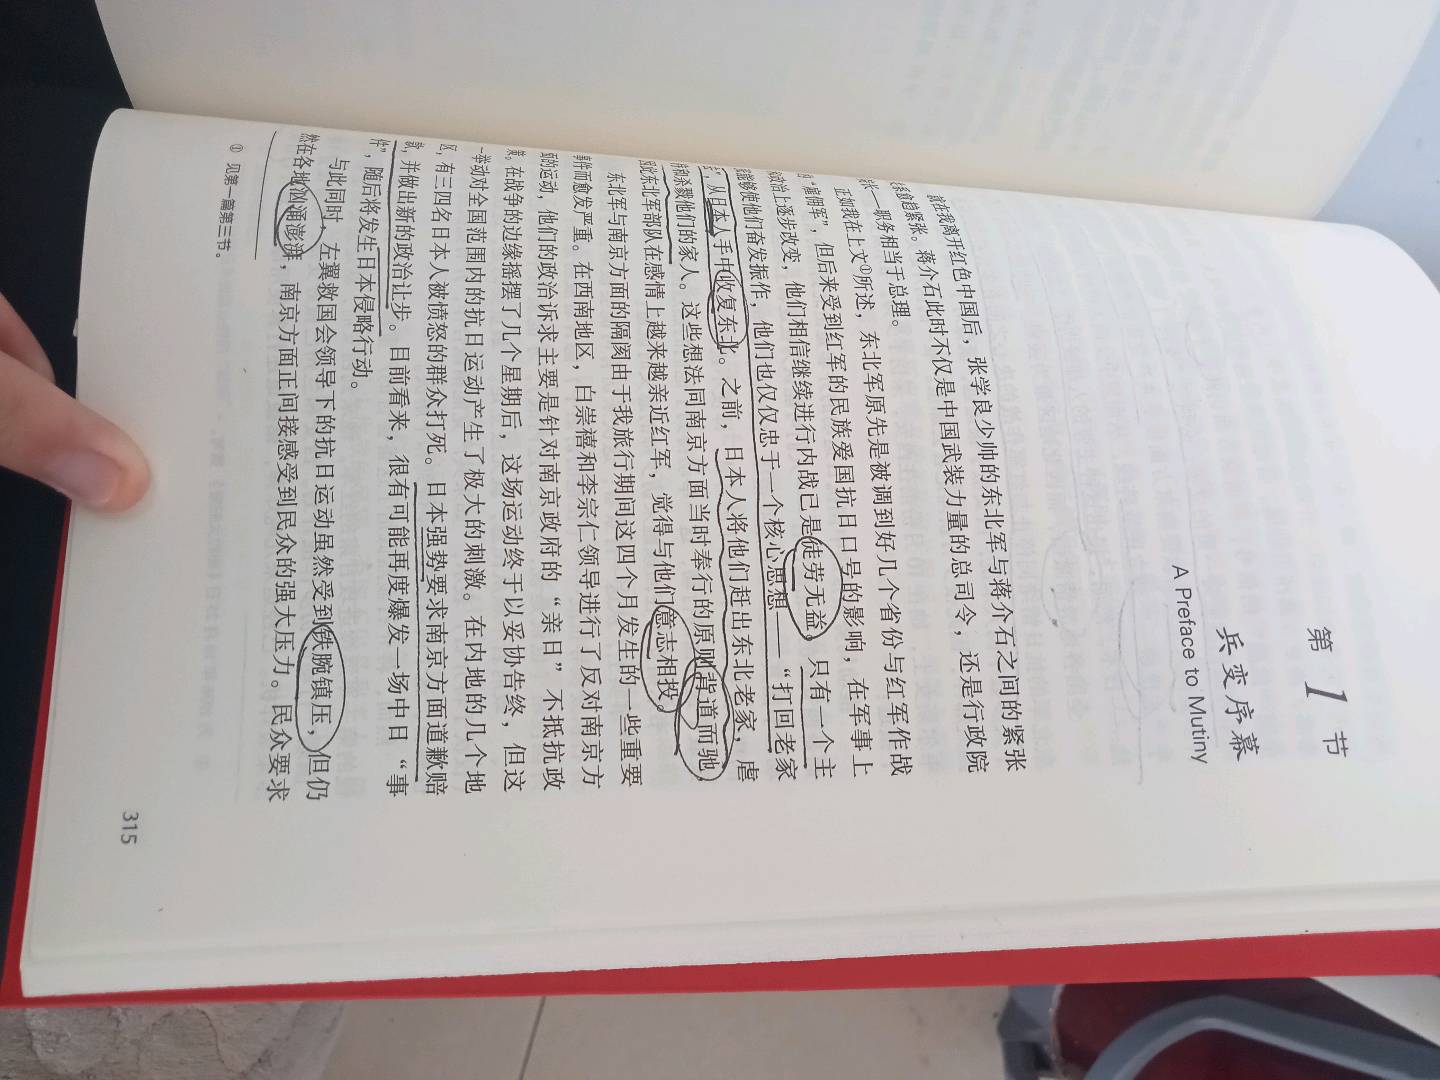 第1节
兵变序幕
A Preface to Mutiny
在我离开红色中国后，张学良少帅的东北军与蒋介石之间的紧张
系愈趋紧张。蒋介石此时不仅是中国武装力量的总司令，还是行政院
长——职务相当于总理。
正如我在上文①所述，东北军原先是被调到好几个省份与红军作战
的“雇佣军”，但后来受到红军的民族爱国抗日口号的影响，在军事上
政治上逐步改变，他们相信继续进行内战已是徒劳无益。只有一个主
能够使他们奋发振作，他们也仅仅忠于一个核心思想——“打回老家
去”，从日本人手中收复东北。之前，日本人将他们赶出东北老家，虐
待和杀戮他们的家人。这些想法同南京方面当时奉行的原则背道而驰
因此东北军部队在感情上越来越亲近红军，觉得与他们意志相投。
东北军与南京方面的隔阂由于我旅行期间这四个月发生的一些重要
事件而愈发严重。在西南地区，白崇禧和李宗仁领导进行了反对南京方
面的运动，他们的政治诉求主要是针对南京政府的“亲日”不抵抗政
策。在战争的边缘摇摆了几个星期后，这场运动终于以妥协告终，但这
一举动对全国范围内的抗日运动产生了极大的刺激。在内地的几个地
区，有三四名日本人被愤怒的群众打死。日本强势要求南京方面道歉赔
款，并做出新的政治让步。目前看来，很有可能再度爆发一场中日“事
件”，随后将发生日本侵略行动。
与此同时，左翼救国会领导下的抗日运动虽然受到铁腕镇压，但仍
然在各地汹涌澎湃，南京方面正间接感受到民众的强大压力。民众要求
① 见第一篇第三节。
315